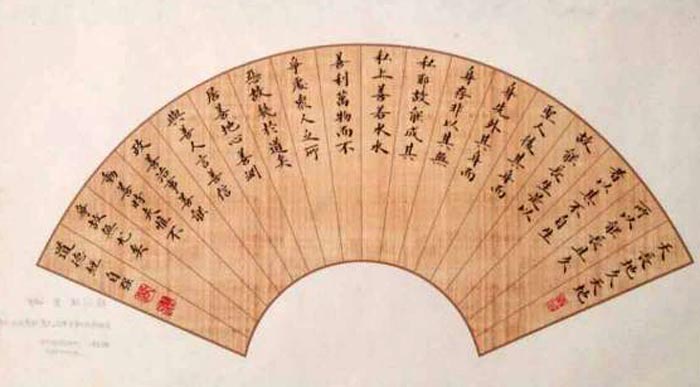 天長地久天地
所以能長且久
者以其不自生
故能長生是以
聖人後其身而
身先外其身而
身存非以其無
私耶故能成其
私上善若水水
善利萬物而不
爭處衆人之所
惡故幾於道矣
居善地心善淵
與善人言善信
政善治事善能
動善時夫惟不
爭故無尤矣
道德經 自强